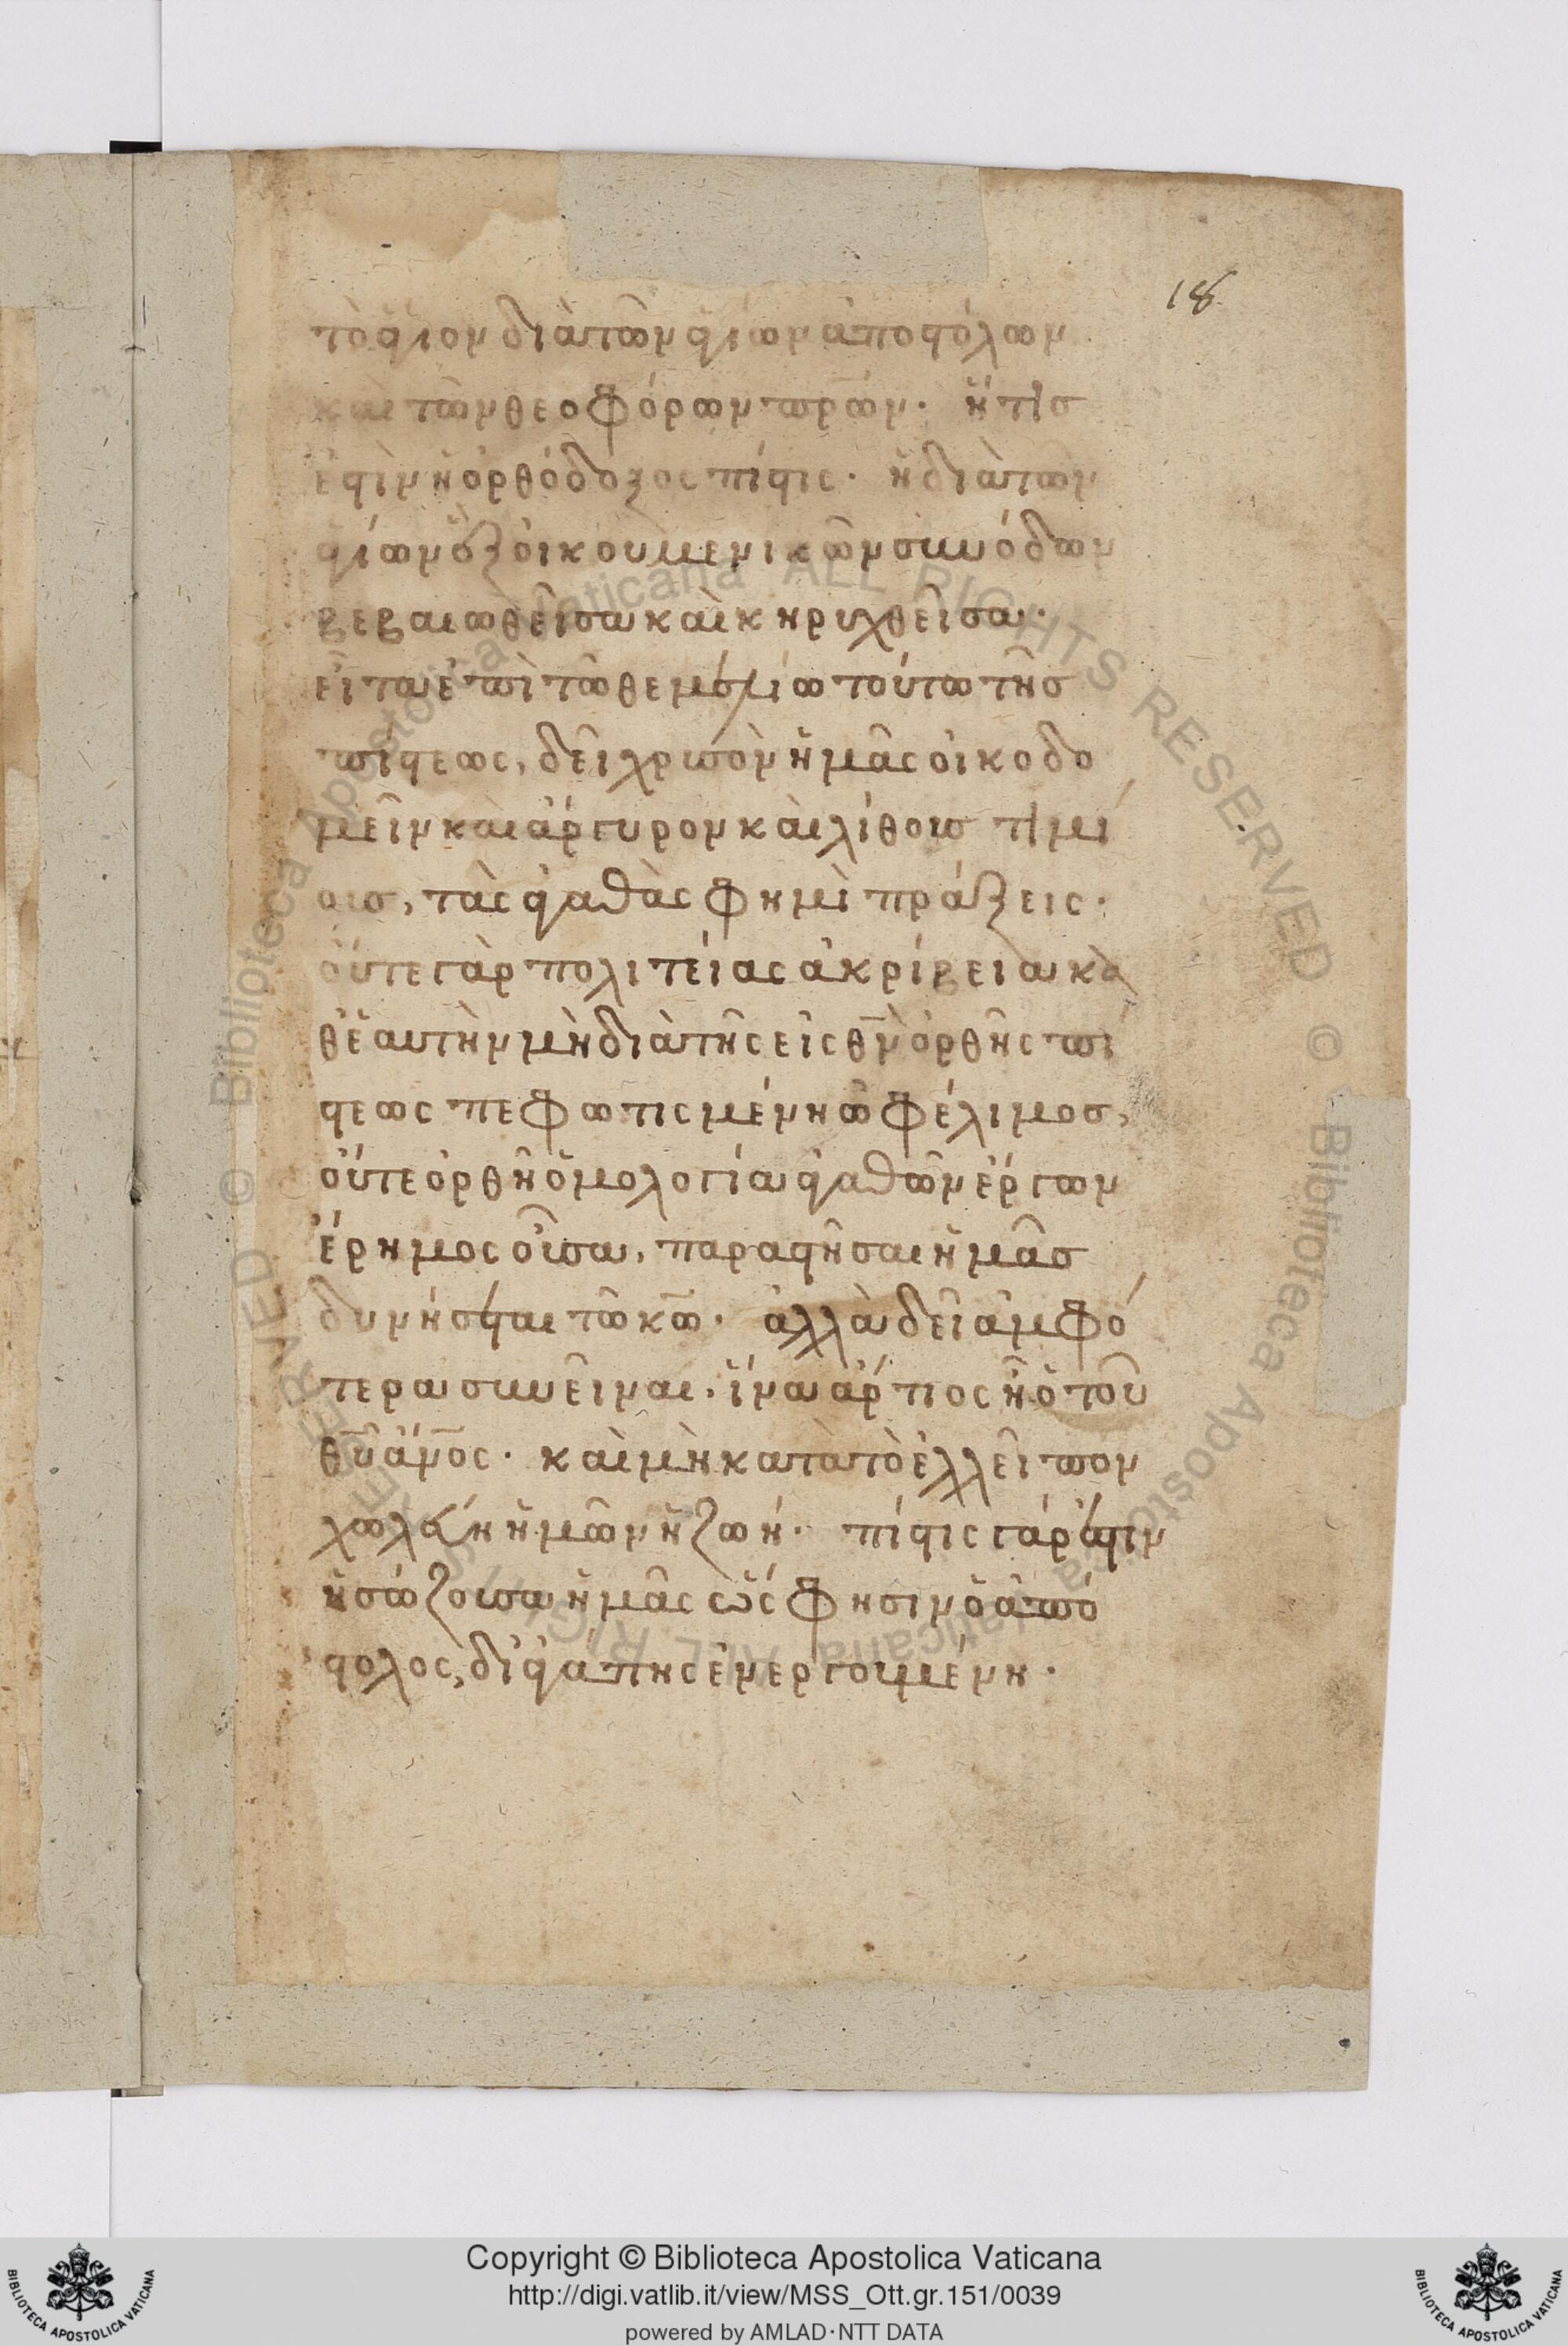 18
τὸ ἅγιον διὰ τῶν ἁγίων ἀποστόλων
καὶ τῶν θεοφόρων πρῶν· ἥτις
ἐστὶν ἡ ὀρθόδοξος πίστις· ἡ διὰ τῶν
ἁγίων οἰκουμενικῶν συνόδων
βεβαιωθεῖσα καὶ κηρυχθεῖσα·
εἶτα ἐπὶ τῶ θεμελίω τούτω τῆς
πίστεως, δεῖ χρυσὸν ἡμᾶς οἰκοδο
μεῖν καὶ ἄργυρον καὶ λίθοις τιμί
οις, τὰς ἀγαθὰς φημὶ πράξεις·
οὔτε γὰρ πολιτείας ἀκρίβεια κα
θἑαυτὴν μὴ διὰ τῆς εἰς θν ὀρθῆς πί
στεως πεφωτισμένη ὠφέλιμος,
οὔτε ὀρθὴ ὁμολογία ἀγαθῶν ἔργων
ἔρημος οὖσα, παραστῆσαι ἡμᾶς
δυνήσεται τῶ κω· ἀλλὰ δεῖ ἀμφό
τερα συνεῖναι· ἵνα ἄρτιος ἦ ὁ τοῦ
θυ ἄνος· καὶ μὴ κατὰ τὸ ἐλλεῖπον
χωλεύη ἡμῶν ἡ ζωή· πίστις γάρ ἐστιν
ἡ σώζουσα ἡμᾶς ὥς φησιν ὁ ἀπό
στολος, δι' ἀγάπης ἐνεργουμένη·
Copyright © Biblioteca Apostolica Vaticana
http://digi.vatlib.it/view/MSS_Ott.gr.151/0039
powered by AMLAD·NTT DATA